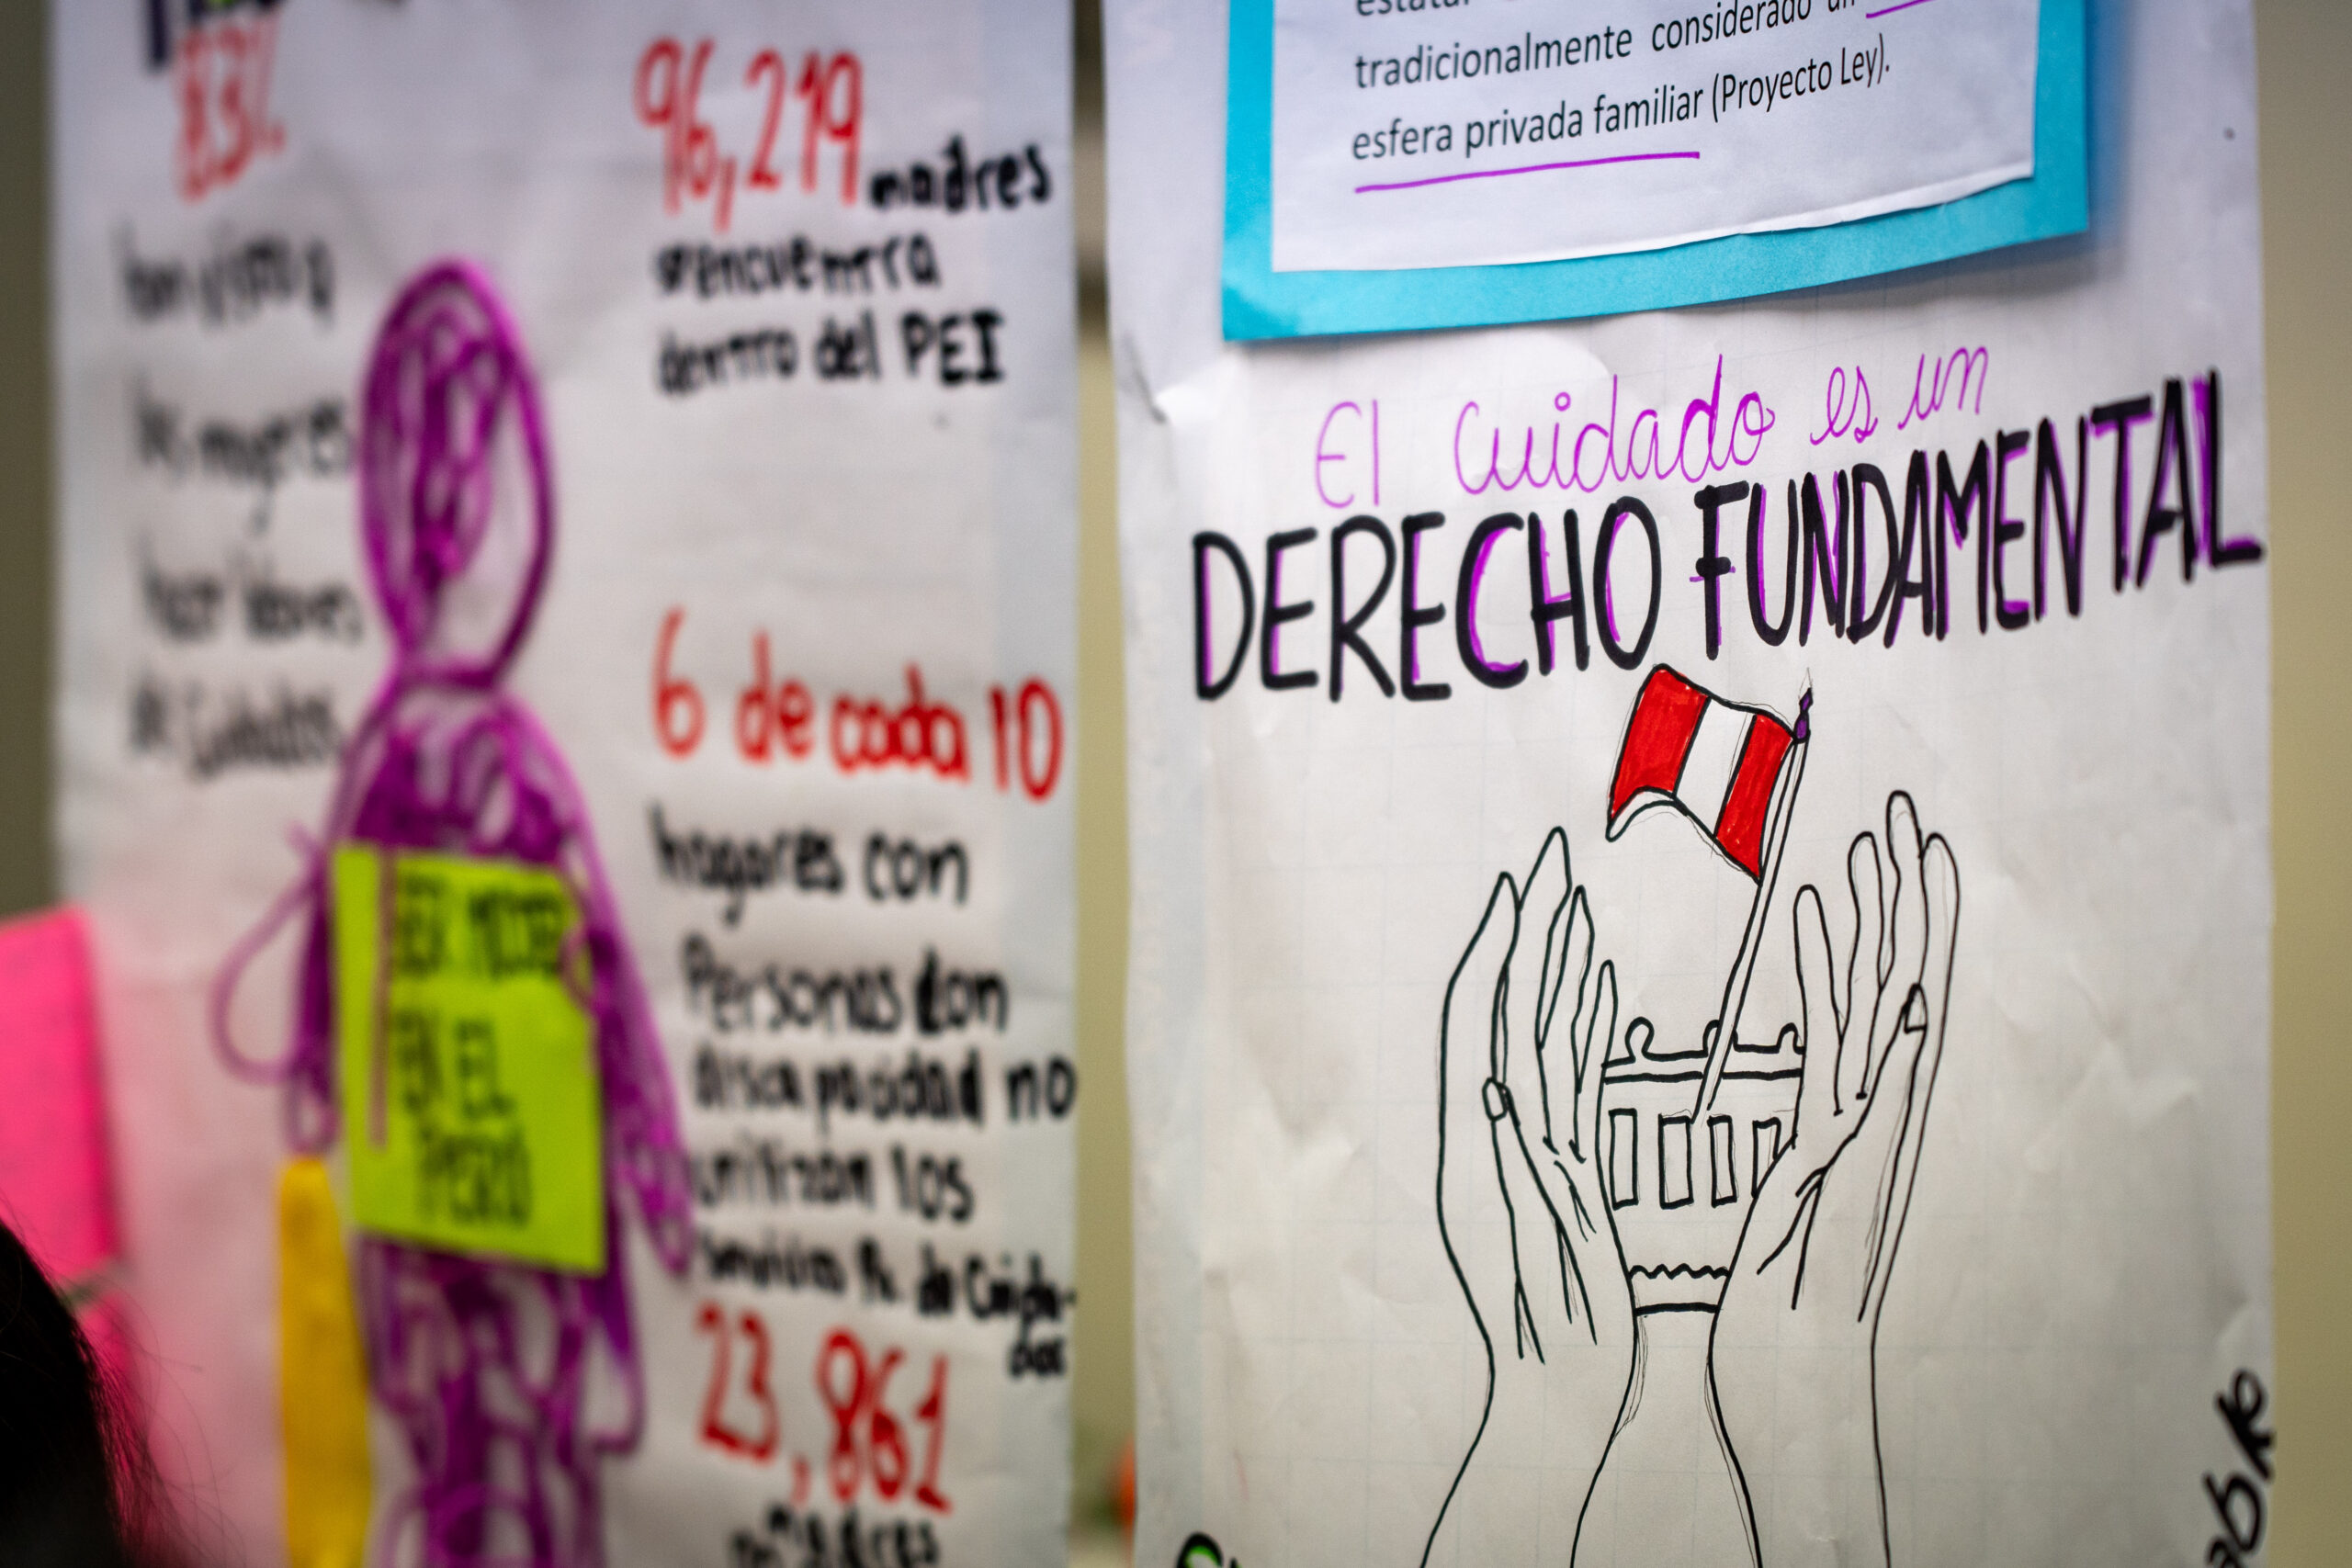 83%
las mujeres
96,219 madres
se encuentra
dentro del PEI
6 de cada 10
hogares con
Personas con
discapacidad no
utilizan los
Servicios de Cuida-
dos
23,861
madres
SER MUJER
EN EL
PERÚ
tradicionalmente considerado un
esfera privada familiar (Proyecto Ley).
El cuidado es un
DERECHO FUNDAMENTAL